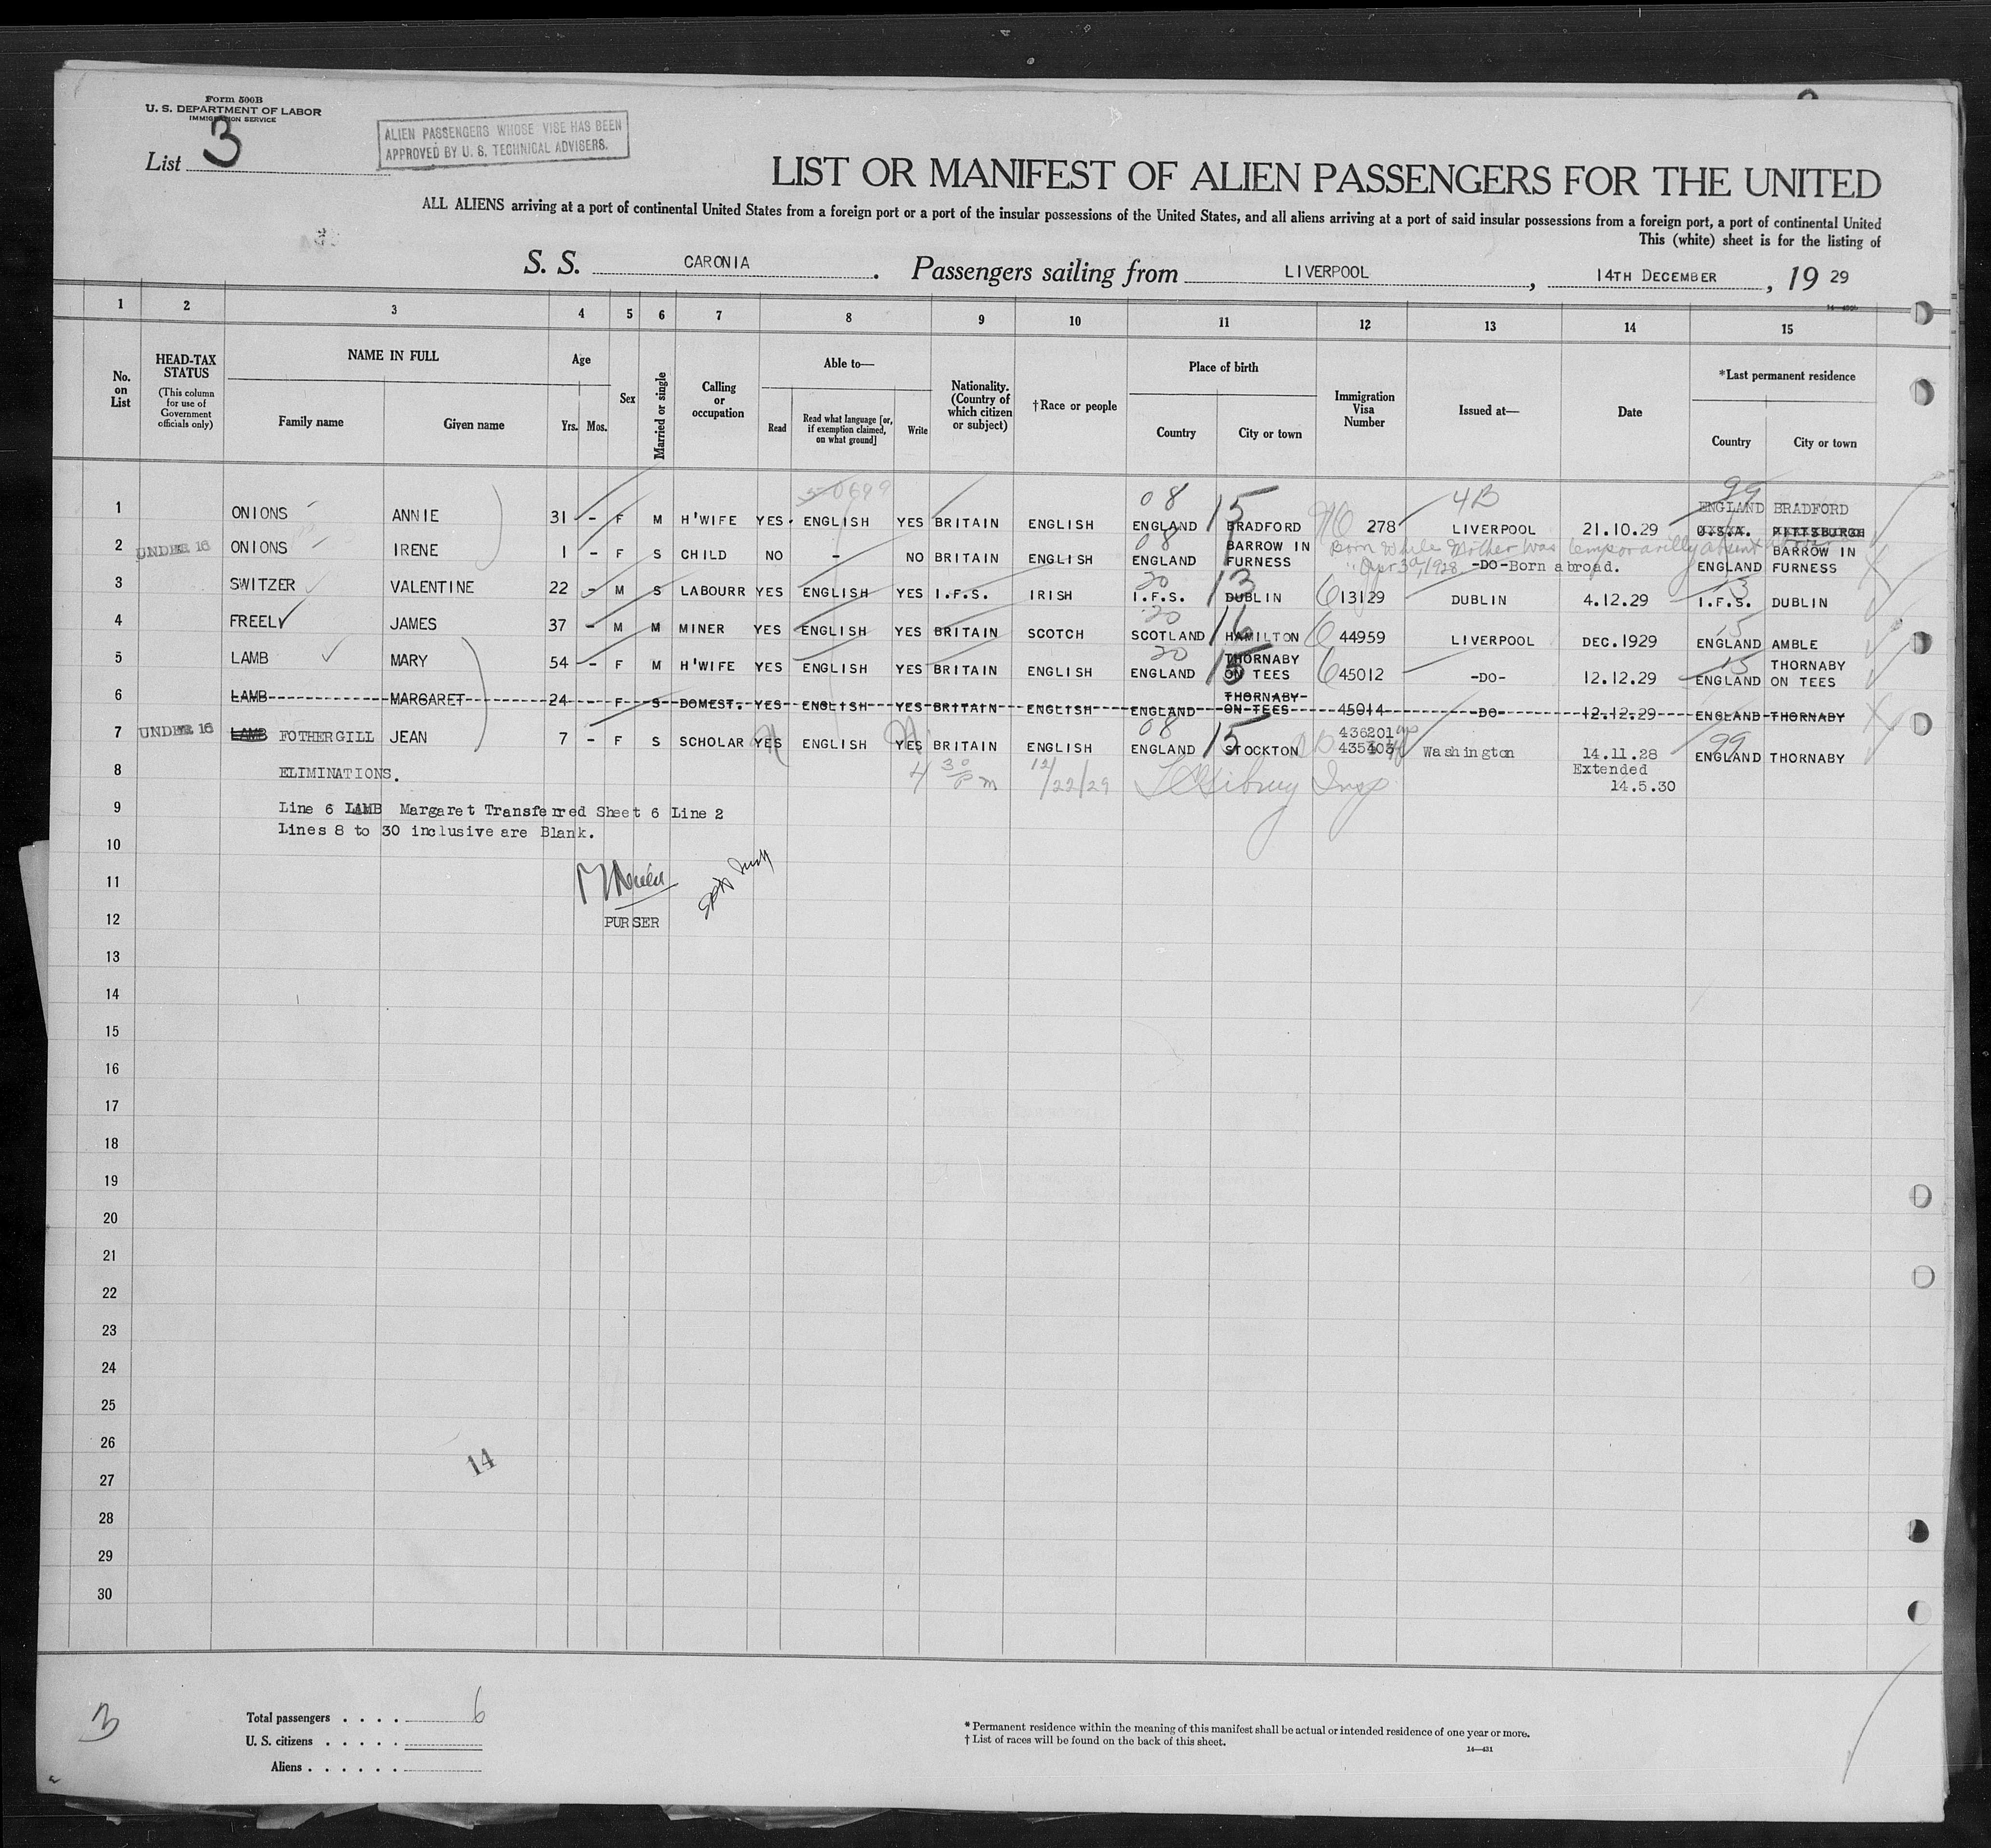 Form 500B
U. S. DEPARTMENT OF LABOR
IMMIGRATION SERVICE
List 3
ALIEN PASSENGERS WHOSE VISE HAS BEEN
APPROVED BY U. S. TECHNICAL ADVISERS.
LIST OR MANIFEST OF ALIEN PASSENGERS FOR THE UNITED
ALL ALIENS arriving at a port of continental United States from a foreign port or a port of the insular possessions of the United States, and all aliens arriving at a port of said insular possessions from a foreign port, a port of continental United
This (white) sheet is for the listing of
S. S. CARONIA. Passengers sailing from LIVERPOOL, 14TH DECEMBER, 19 29
1 2 3 4 5 6 7 8 9 10 11 12 13 14 15
No. on List
HEAD-TAX STATUS
(This column for use of Government officials only)
NAME IN FULL
Family name Given name
Age
Yrs. Mos.
Sex
Married or single
Calling or occupation
Able to—
Read
Read what language [or, if exemption claimed, on what ground]
Write
Nationality. (Country of which citizen or subject)
†Race or people
Place of birth
Country City or town
Immigration Visa Number
Issued at—
Date
*Last permanent residence
Country City or town
50699
08 15 4B 99
ENGLAND BRADFORD
1 ONIONS ANNIE 31 - F M H'WIFE YES ENGLISH YES BRITAIN ENGLISH ENGLAND BRADFORD 278 LIVERPOOL 21.10.29 U.S.A. PITTSBURGH
08
Born while Mother was temporarily absent
2 UNDER 16 ONIONS IRENE 1 - F S CHILD NO - NO BRITAIN ENGLISH ENGLAND BARROW IN FURNESS Apr 30/1928 -DO- Born abroad. ENGLAND BARROW IN FURNESS
20 13
3 SWITZER VALENTINE 22 - M S LABOURR YES ENGLISH YES I.F.S. IRISH I.F.S. DUBLIN 6 13129 DUBLIN 4.12.29 I.F.S. DUBLIN
20 16 15
4 FREEL JAMES 37 - M M MINER YES ENGLISH YES BRITAIN SCOTCH SCOTLAND HAMILTON 6 44959 LIVERPOOL DEC.1929 ENGLAND AMBLE
20 15 15
5 LAMB MARY 54 - F M H'WIFE YES ENGLISH YES BRITAIN ENGLISH ENGLAND THORNABY ON TEES 6 45012 -DO- 12.12.29 ENGLAND THORNABY ON TEES
6 LAMB MARGARET 24 - F S DOMEST. YES ENGLISH YES BRITAIN ENGLISH ENGLAND THORNABY ON TEES 45014 -DO- 12.12.29 ENGLAND THORNABY
08 15 436201 99
7 UNDER 16 LAMB FOTHERGILL JEAN 7 - F S SCHOLAR YES ENGLISH YES BRITAIN ENGLISH ENGLAND STOCKTON 435403 Washington 14.11.28 ENGLAND THORNABY
Extended
14.5.30
8 ELIMINATIONS. 4 30 pm 12/22/29 Insp
9 Line 6 LAMB Margaret Transferred Sheet 6 Line 2
Lines 8 to 30 inclusive are Blank.
10
11
12 PURSER
13
14
15
16
17
18
19
20
21
22
23
24
25
26
14
27
28
29
30
3
Total passengers . . . . 6
U. S. citizens . . . . .
Aliens . . . . . .
* Permanent residence within the meaning of this manifest shall be actual or intended residence of one year or more.
† List of races will be found on the back of this sheet.
14—431